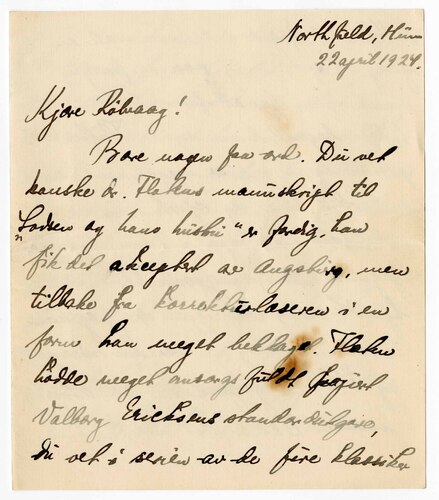 Northfield, Minn
22 april 1924.
Kjære Rølvaag!
Bare nogen faa ord. Du vet
kanske Flatens manuskript til
"Lodsen og hans hustru" er færdig, han
fik det akceptert av Augsburg, men
tilbake fra korrekturlæseren i en
form han meget beklaget. Flaten
hadde meget omsorgsfuldt kopiert
Valborg Ericksens standardutgave,
du vet i serien av de fire klassiker